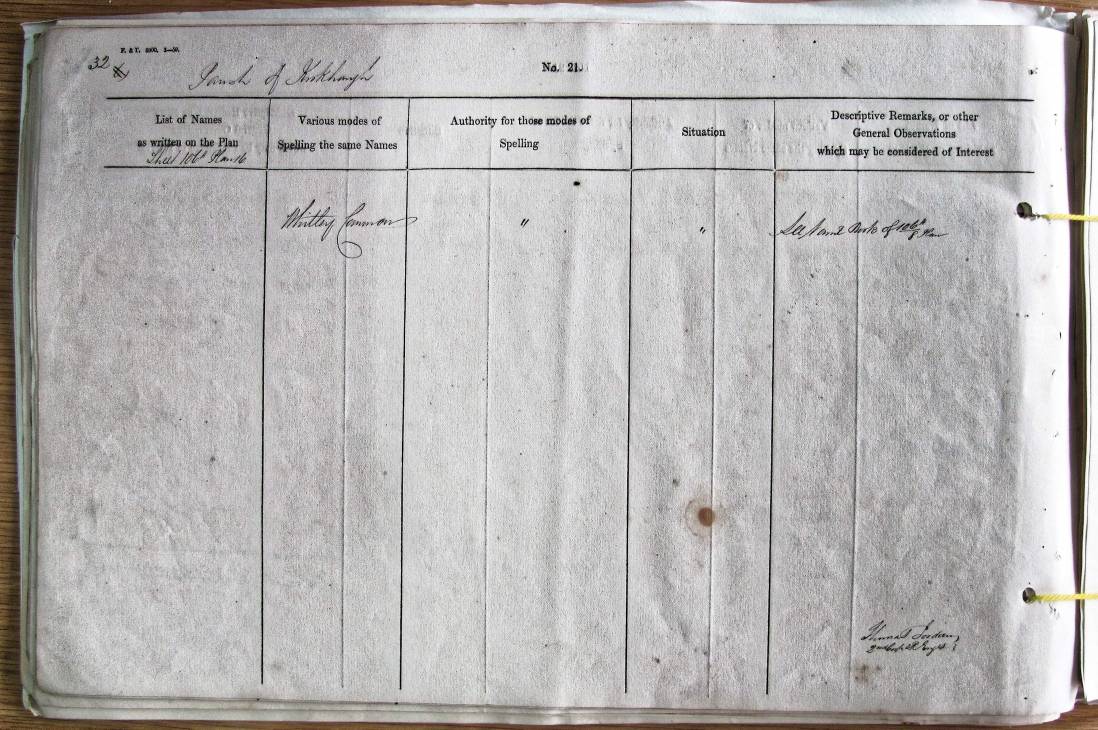 F. & T. 5000. 3—59.
32
Parish of Kirkhaugh
No. 21.
List of Names
as written on the Plan
Sheet 106th Plan 16
Various modes of
Spelling the same Names
Authority for those modes of
Spelling
Situation
Descriptive Remarks, or other
General Observations
which may be considered of Interest
Whitley Common " " See Name Book of 106th Plan
Thomas Jordan
2nd Corpl R. Engrs